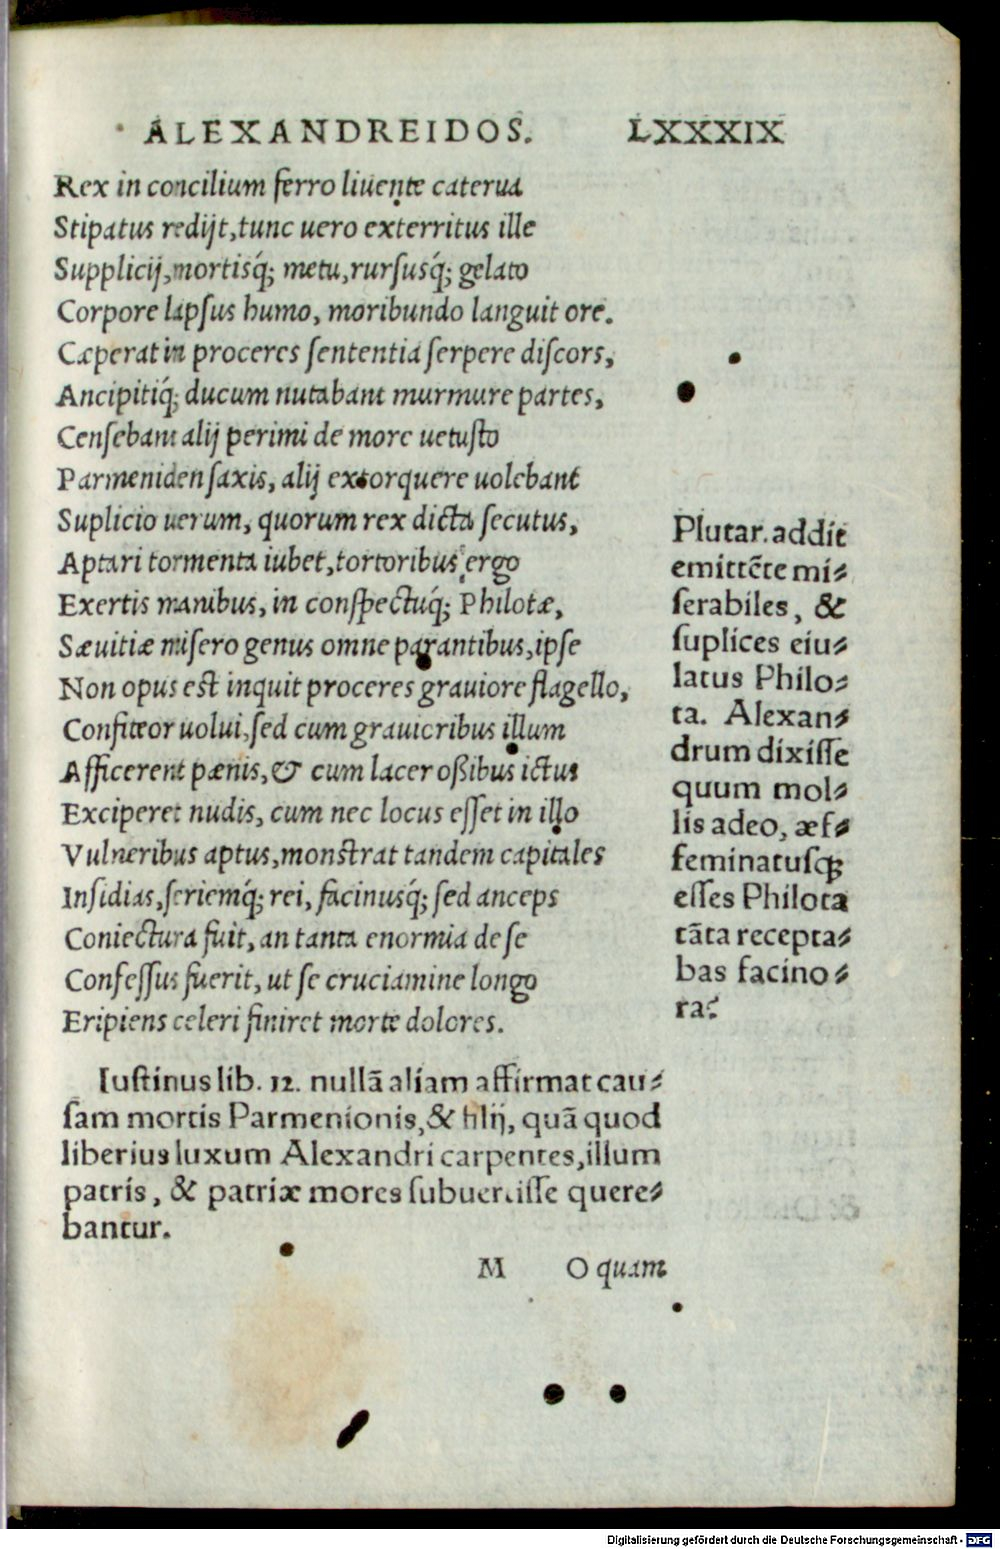 ALEXANDREIDOS. LXXXIX
Rex in concilium ferro liuente caterua
Stipatus redijt, tunc uero exterritus ille
Supplicij, mortisq́; metu, rursusq́; gelato
Corpore lapsus humo, moribundo languit ore.
Cæperat in proceres sententia serpere discors,
Ancipitiq́; ducum nutabant murmure partes,
Censebant alij perimi de more uetusto
Parmeniden saxis, alij extorquere uolebant
Suplicio uerum, quorum rex dicta secutus,
Aptari tormenta iubet, tortoribus ergo
Exertis manibus, in conspectuq́; Philotæ,
Sæuitiæ misero genus omne parantibus, ipse
Non opus est inquit proceres grauiore flagello,
Confiteor uolui, sed cum grauioribus illum
Afficerent pænis, & cum lacer oßibus ictus
Exciperet nudis, cum nec locus esset in illo
Vulneribus aptus, monstrat tandem capitales
Insidias, seriemq́; rei, facinusq́; sed anceps
Coniectura fuit, an tanta enormia de se
Confessus fuerit, ut se cruciamine longo
Eripiens celeri finiret morte dolores.
Plutar. addit
emittẽte mi⸗
serabiles, &
suplices eiu⸗
latus Philo⸗
ta. Alexan⸗
drum dixisse
quum mol⸗
lis adeo, æf⸗
feminatusq;
esses Philota
tãta recepta⸗
bas facino⸗
ra?
Iustinus lib. 12. nullã aliam affirmat cau⸗
sam mortis Parmenionis, & filij, quã quod
liberius luxum Alexandri carpentes, illum
patris, & patriæ mores subuertisse quere⸗
bantur.
M O quam
Digitalisierung gefördert durch die Deutsche Forschungsgemeinschaft - DFG